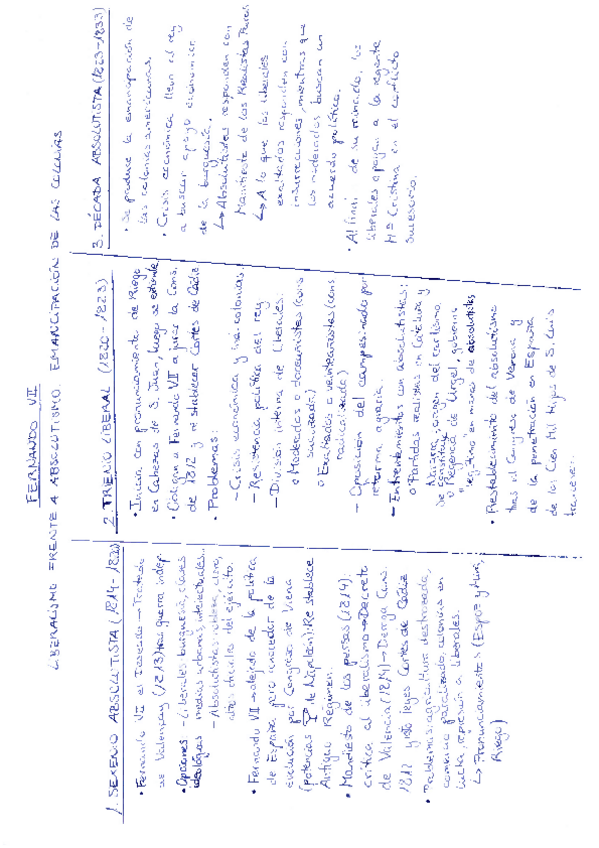 FERNANDO VII
LIBERALISMO FRENTE A ABSOLUTISMO. EMANCIPACIÓN DE LAS COLONIAS
1. SEXENIO ABSOLUTISTA (1814-1820)
• Fernando VII el Deseado → Tratado
de Valençay (1813) tras guerra indep.
• Opciones - Liberales: burguesía, clases
ideológicas medias urbanas, intelectuales...
- Absolutistas: nobleza, clero,
altos cargos del ejército.
• Fernando VII → alejado de la política
de España pero conocedor de la
evolución por Congreso de Viena
(potencias de Napoleón). Restablece
Antiguo Régimen.
• Manifiesto de los persas (1814):
crítica al liberalismo → Decreto
de Valencia (1814) → Deroga Cons.
1812 y las leyes Cortes de Cádiz
• Problemas: agricultura destrozada,
comercio paralizado, colonias en
lucha, represión a liberales.
↳ Pronunciamientos (Espoz y Mina,
Riego)
2. TRIENIO LIBERAL (1820-1823)
• Inicia con pronunciamiento de Riego
en Cabezas de S. Juan, luego se extiende.
• Obligan a Fernando VII a jurar la Cons.
de 1812 y restablecer Cortes de Cádiz
• Problemas:
- Crisis económica y las colonias.
- Resistencia política del rey
- División interna de liberales.
o Moderados o doceañistas (cons
suavizada)
o Exaltados o veinteañistas (cons
radicalizada)
- Oposición del campesinado por
reforma agraria.
- Enfrentamientos con absolutistas:
o Partidas realistas en Cataluña y
Navarra, origen del carlismo.
Se constituye
o Regencia de Urgel, gobierno
legítimo en manos de absolutistas
• Restablecimiento del absolutismo
tras el Congreso de Verona y
de la penetración en España
de los Cien Mil Hijos de S. Luis
franceses.
3. DÉCADA ABSOLUTISTA (1823-1833)
• Se produce la emancipación de
las colonias americanas.
• Crisis económica lleva al rey
a buscar apoyo económico
de la burguesía.
↳ Absolutistas responden con
Manifiesto de los Realistas Puros
↳ A lo que los liberales
exaltados responden con
insurrecciones, mientras que
los moderados buscan un
acuerdo político.
• Al final de su reinado, los
liberales apoyan a la regente
Mª Cristina en el conflicto
sucesorio.